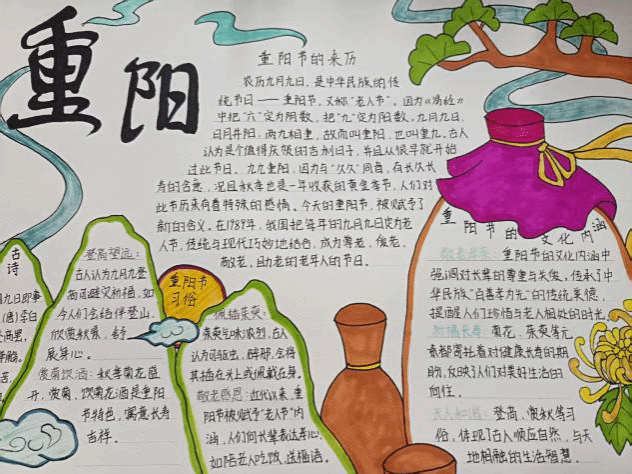 重阳
重阳节的来历
农历九月九日，是中华民族的传
统节日——重阳节，又称"老人节"。因为《易经》
中把"六"定为阴数，把"九"定为阳数，九月九日，
日月并阳，两九相重，故而叫重阳，也叫重九。古人
认为是个值得庆贺的吉利日子，并且从很早就开始
过此节日。九九重阳，因为与"久久"同音，有长久长
寿的含意，况且秋季也是一年收获的黄金季节，人们对
此节历来有着特殊的感情。今天的重阳节，被赋予了
新的含义。在1989年，我国把每年的九月九日定为老
人节，传统与现代巧妙地结合，成为尊老、敬老、
爱老、助老的老年人的节日。
古
诗
九月九日即事
（唐）李白
登高望远：
古人认为九月九登
高可避灾祈福，如
今人们会结伴登山，
欣赏秋景，舒
展身心。
赏菊饮酒：秋季菊花盛
开，赏菊、饮菊花酒是重阳
节特色，寓意长寿
吉祥。
重阳节
习俗
佩插茱萸：
茱萸气味浓烈，古人
认为可驱虫，辟邪，会将
其插在头上或佩戴在身。
敬老感恩：近代以来，重
阳节被赋予"老人节"内
涵，人们向长辈表达孝心，
如陪老人吃饭、送福语。
重阳节的文化内涵
敬老孝亲：重阳节的文化内涵中
强调对长辈的尊重与关怀，传承了中
华民族"百善孝为先"的传统美德，
提醒人们珍惜与老人相处的时光。
祈福长寿：菊花、茱萸等元
素都寄托着对健康长寿的期
盼，反映了人们对美好生活的
向往。
天人和谐：登高、赏秋等习
俗，体现了古人顺应自然、与天
地相融的生活智慧。